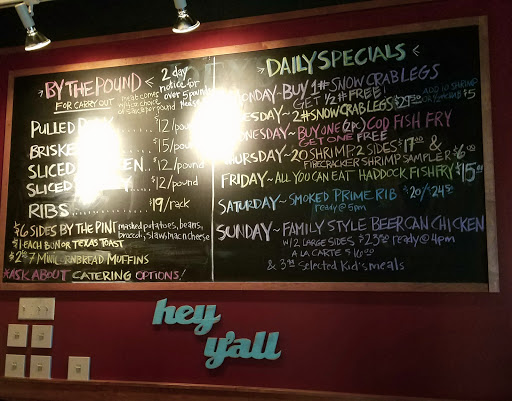 BY THE POUND
FOR CARRY OUT
2 day
notice for
over 5 pounds
meat comes
w/ your choice
of sauce per pound
PULLED $12/pound
BRISKET /pound
SLICED $12/pound
SLICED $12/pound
RIBS $19/rack
$6 SIDES BY THE PINT mashed potatoes, beans,
broccoli, slaw, mac n cheese
$1 EACH BUN OR TEXAS TOAST
7 MINI CORNBREAD MUFFINS
*ASK ABOUT CATERING OPTIONS!
DAILY SPECIALS
MONDAY~BUY 1# SNOW CRAB LEGS
GET ½# FREE!
TUESDAY~2# SNOW CRAB LEGS
ADD ½ SHRIMP
$5
WEDNESDAY~BUY ONE (2PC) COD FISH FRY
GET ONE FREE
THURSDAY~20 SHRIMP 2 SIDES $17
FIRECRACKER SHRIMP SAMPLER $6
FRIDAY~ALL YOU CAN EAT HADDOCK FISH FRY $15
SATURDAY~SMOKED PRIME RIB $20/$24
ready @ 5pm
SUNDAY~FAMILY STYLE BEER CAN CHICKEN
W/ 2 LARGE SIDES ready @ 4pm
A LA CARTE
& Selected Kid's meals
hey
y'all